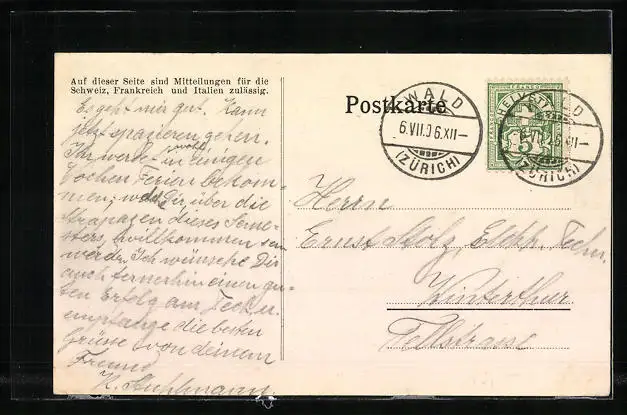 Auf dieser Seite sind Mitteilungen für die
Schweiz, Frankreich und Italien zulässig.
Es geht mir gut. Kann
jetzt spazieren gehen.
Ihr werdet wohl in einigen
Wochen Ferien bekom-
men, was Dir über die
Strapazen dieses Seme-
sters, willkommen sein
werde. Ich wünsche Dir
auch fernerhin einen gu-
ten Erfolg am Techn.
empfange die besten
Grüsse von deinem
Freund
Postkarte
WALD
6.VII.06.XII–
(ZÜRICH)
HELVETIA
5
WALD
(ZÜRICH)
Herrn
Ernst Stolz, Techn.
Winterthur.
Tellstrasse